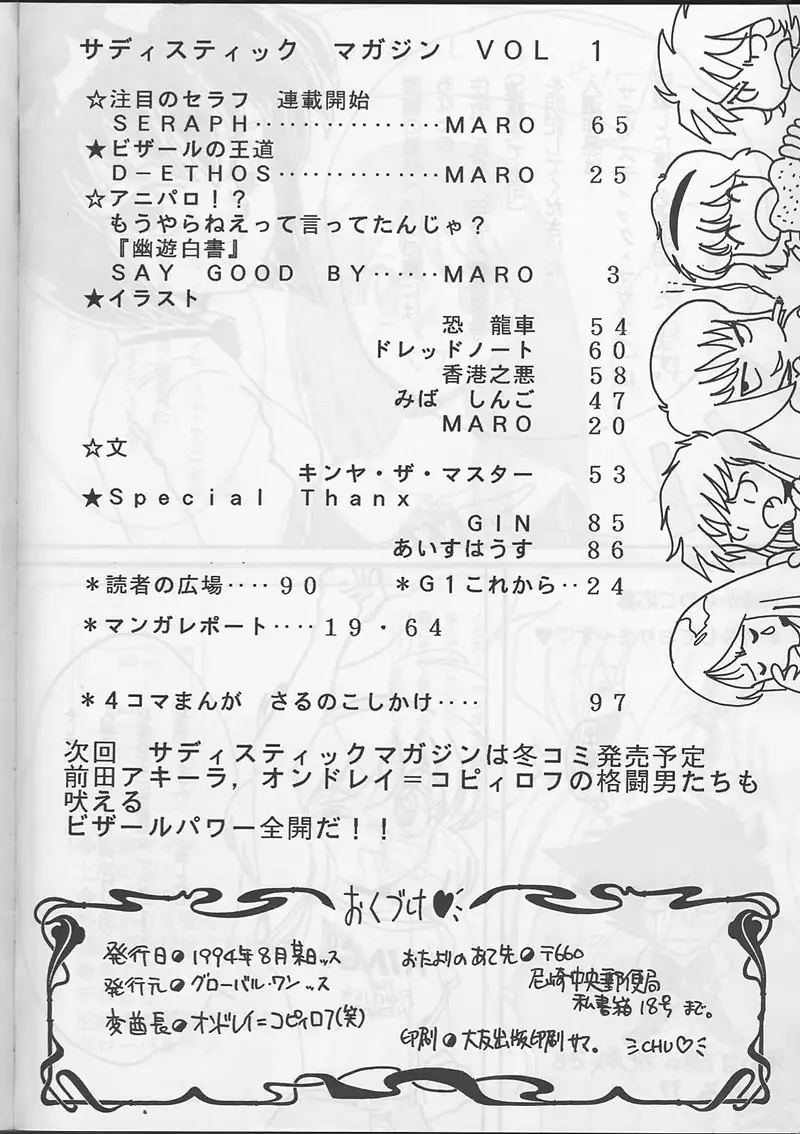 サディスティック　マガジン　ＶＯＬ　１
☆注目のセラフ　連載開始
ＳＥＲＡＰＨ‥‥‥‥‥‥‥‥ＭＡＲＯ　６５
★ビザールの王道
Ｄ－ＥＴＨＯＳ‥‥‥‥‥‥‥ＭＡＲＯ　２５
☆アニパロ！？
もうやらねえって言ってたんじゃ？
『幽遊白書』
ＳＡＹ　ＧＯＯＤ　ＢＹ‥‥‥ＭＡＲＯ　３
★イラスト
恐　龍車　５４
ドレッドノート　６０
香港之悪　５８
みば　しんご　４７
ＭＡＲＯ　２０
☆文
キンヤ・ザ・マスター　５３
★Ｓｐｅｃｉａｌ　Ｔｈａｎｘ
ＧＩＮ　８５
あいすはうす　８６
＊読者の広場‥‥９０　＊Ｇ１これから‥２４
＊マンガレポート‥‥１９・６４
＊４コマまんが　さるのこしかけ‥‥　９７
次回　サディスティックマガジンは冬コミ発売予定
前田アキーラ，オンドレイ＝コピィロフの格闘男たちも
吠える
ビザールパワー全開だ！！
おくづけ♥
発行日●1994年8月某日ッス
発行元●グローバル・ワンッス
変酋長●オンドレイ＝コピィロフ(笑)
おたよりのあて先●〒660
尼崎中央郵便局
私書箱18号まで。
印刷●大友出版印刷サマ。
CHU♡